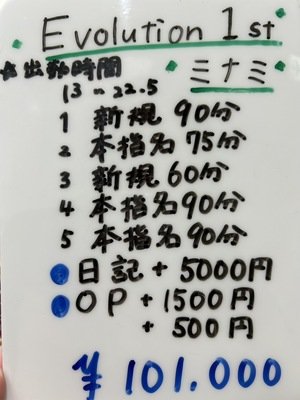 Evolution 1st
出勤時間 ミナミ
13〜22.5
1 新規 90分
2 本指名 75分
3 新規 60分
4 本指名 90分
5 本指名 90分
日記 + 5000円
OP + 1500円
+ 500円
¥101.000